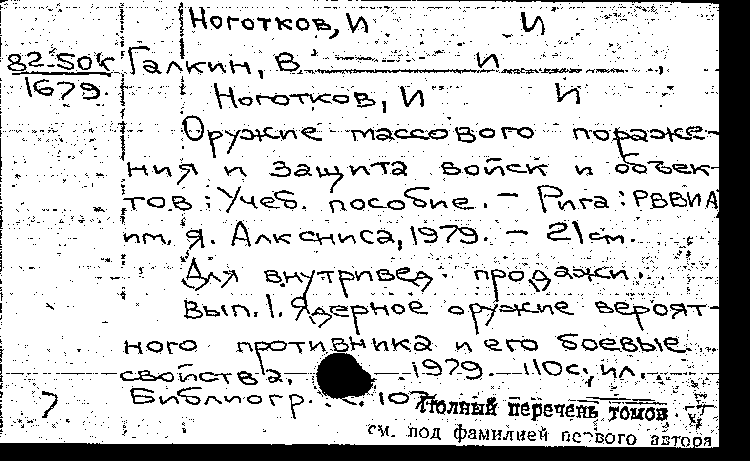 Ноготков, И И
82-50к Галкин, В И ,
1679 Ноготков, И И
Оружие массового пораже-
ния и защита войск и объек-
тов : Учеб. пособие. – Рига : РВВИА
им. Я. Алксниса, 1979. – 21 см.
Для внутривед. продажи.
Вып. 1. Ядерное оружие вероят-
ного противника и его боевые
свойства. 1979. 110 с., ил.
Библиогр.: 107
Полный перечень томов
см. под фамилией первого автора